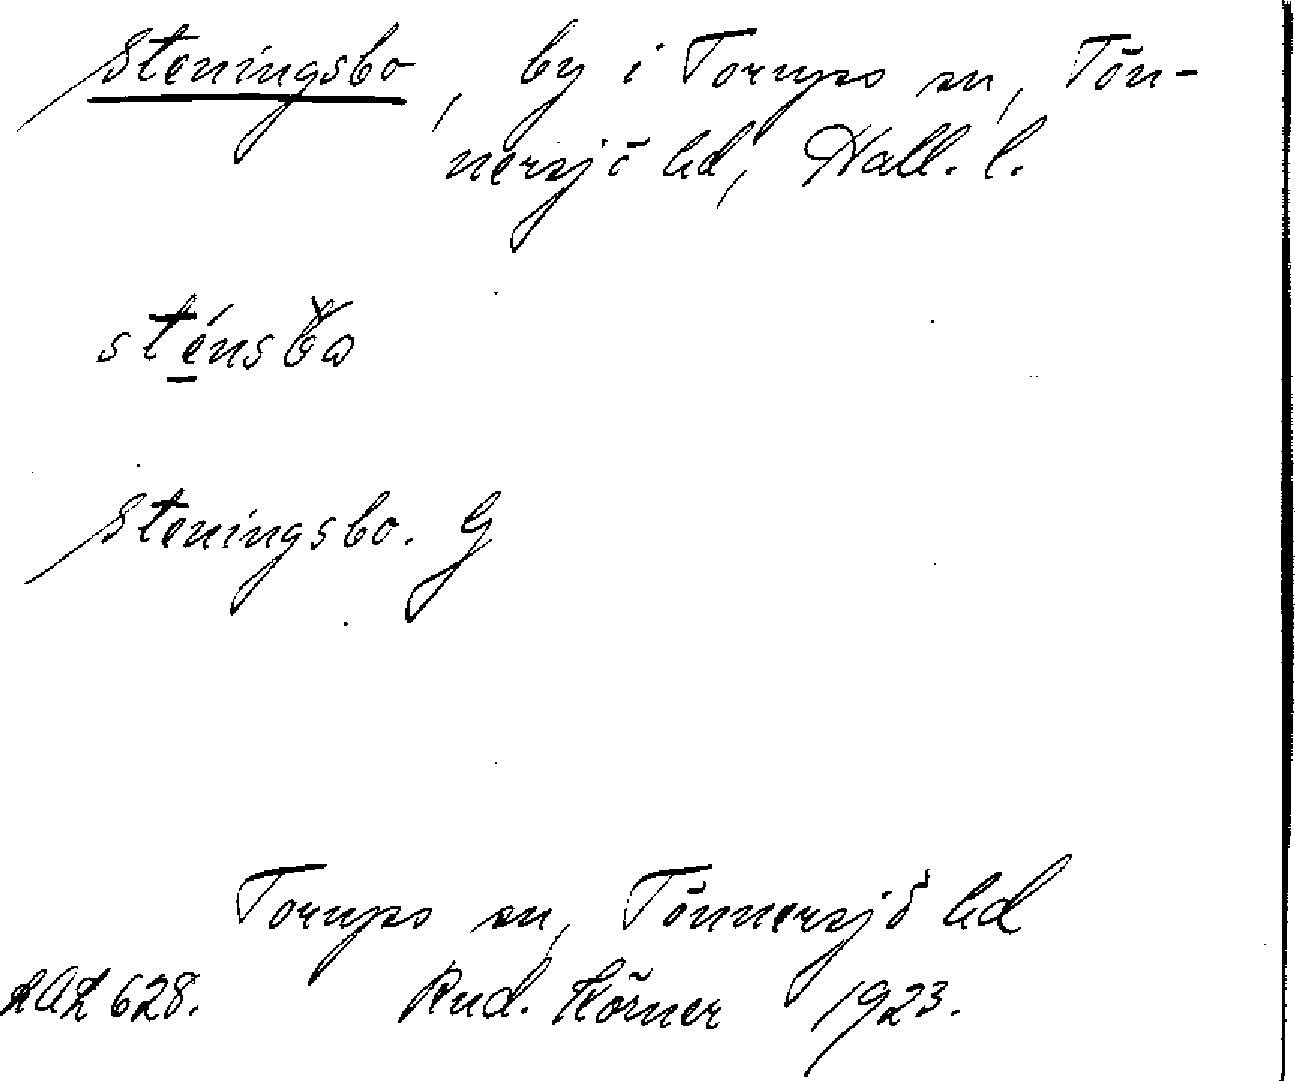 Steningsbo, by i Torups sn, Tön-
nersjö hd, Hall. l.
sténsbo
Steningsbo. G
Torups sn, Tönnersjö hd
628. Rud. Körner 1923.